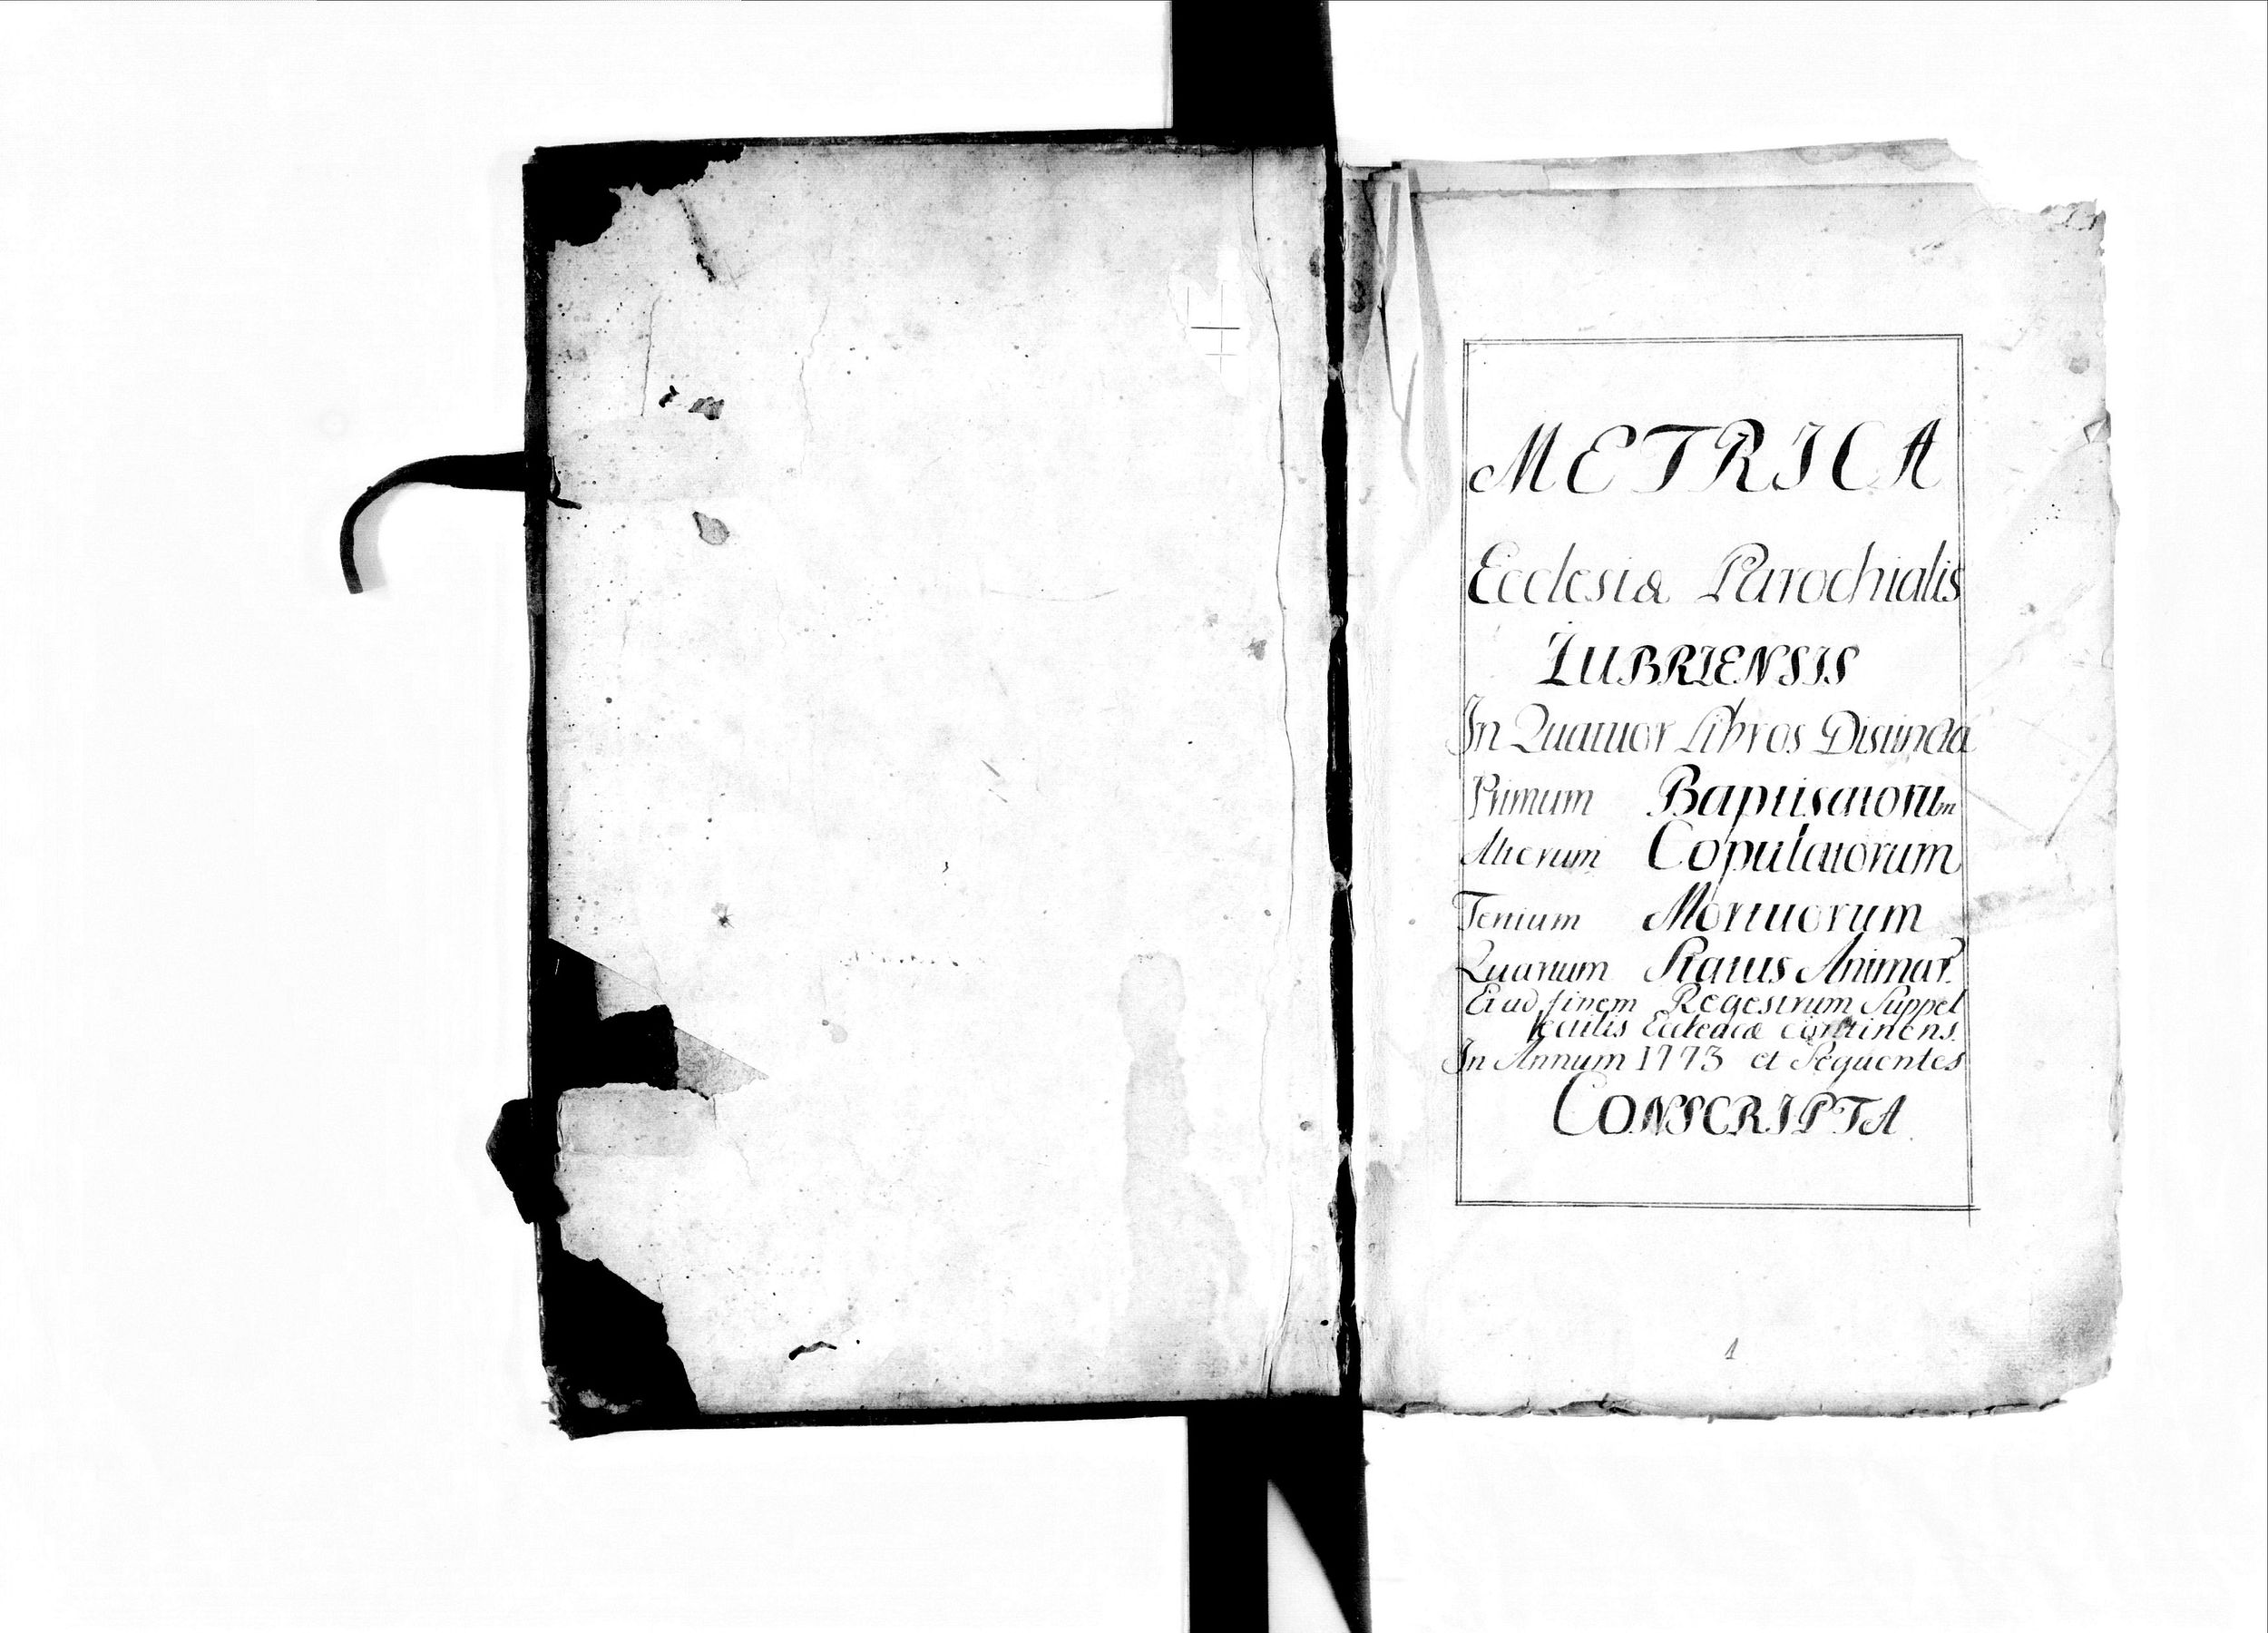 METRICA
Ecclesiæ Parochialis
ZUBRIENSIS
In Quatuor Libros Distincta
Primum Baptisatorum
Alterum Copulatorum
Tertium Mortuorum
Quartum Status Animar.
Et ad finem Regestrum Suppel
lectilis Ecclesiæ continens.
In Annum 1773 et Sequentes
CONSCRIPTA.
1